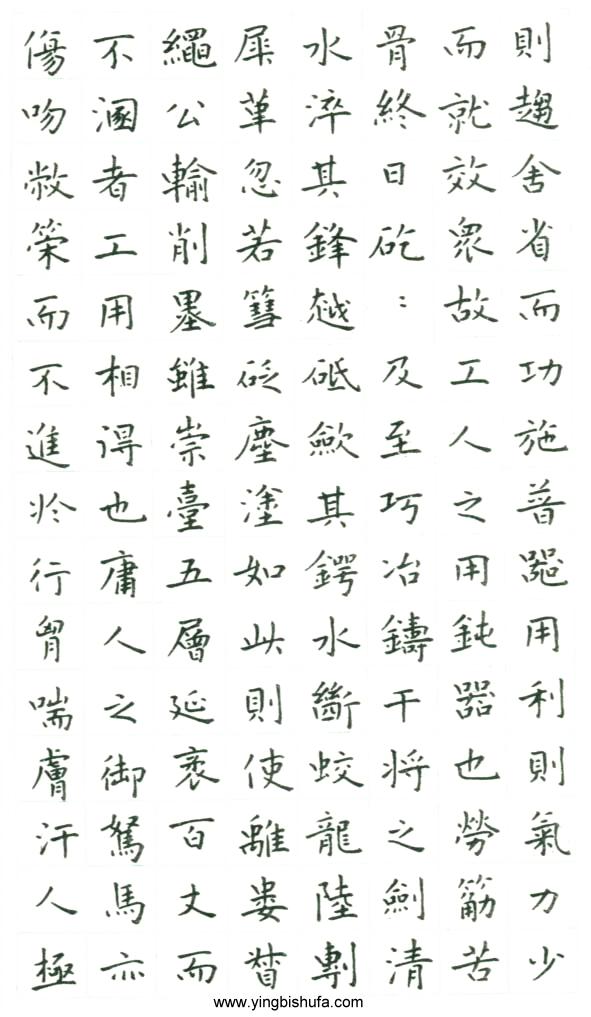 則趨舍省而功施普器用利則氣力少
而就效衆故工人之用鈍器也勞筋苦
骨終日矻：及至巧冶鑄干將之劍清
水淬其鋒越砥歛其鍔水斷蛟龍陸剸
犀革忽若篲砭塵塗如此則使離婁督
繩公輸削墨雖崇臺五層延袤百丈而
不溷者工用相得也庸人之御駑馬亦
傷吻敝策而不進於行胷喘膚汗人極
www.yingbishufa.com